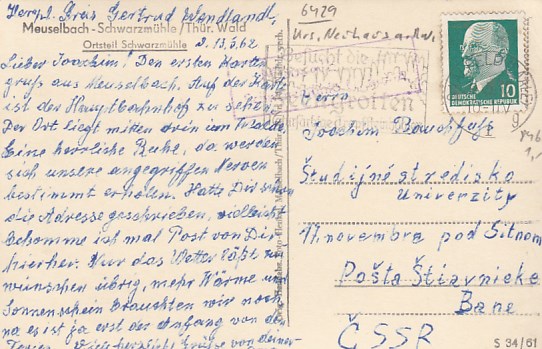 Herzl. Grüß Gertrud Wendlandt,
Meuselbach - Schwarzmühle / Thür. Wald
Ortsteil Schwarzmühle
d. 13.5.62
Lieber Joachim! Den ersten Karten
gruß aus Meuselbach. Auf der Karte
ist der Hauptbahnhof zu sehen
Der Ort liegt mitten drin im Walde,
Eine herrliche Ruhe, da werden
sich unsere angegriffen Nerven
bestimmt erholen. Hatte Dir schon
die Adresse geschrieben, vielleicht
bekomme ich mal Post von Dir
hierher. Nur das Wetter läßt zu
wünschen übrig, mehr Wärme und
Sonnenschein brauchten wir noch
na es ist ja erst der Anfang von den
Ferien. Viele herzliche Grüße von deiner
6429
Besucht die
DEUTSCHE
DEMOKRATISCHE REPUBLIK
10
Herrn
Joachim
Študijné stredisko
Univerzity
17. novembra pod Sitnom
Pošta Štiavnicke
Bane
ČSSR
S 34/61